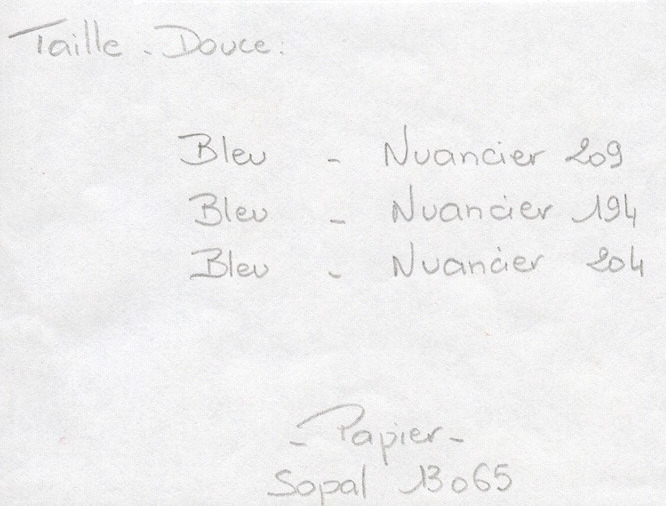 Taille - Douce :
Bleu - Nuancier 209
Bleu - Nuancier 194
Bleu - Nuancier 204
- Papier -
Sopal 13065